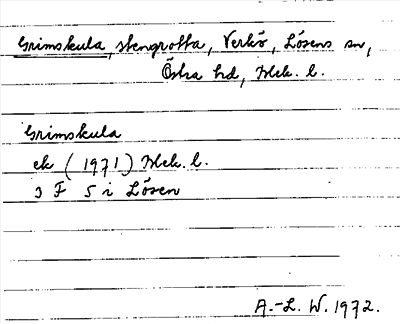 Grimskula, stengrotta, Verkö, Lösens sn,
Östra hd, Blek. l.
Grimskula
ek (1971) Blek. l.
3 F 5 i Lösen
A.-L. W. 1972.